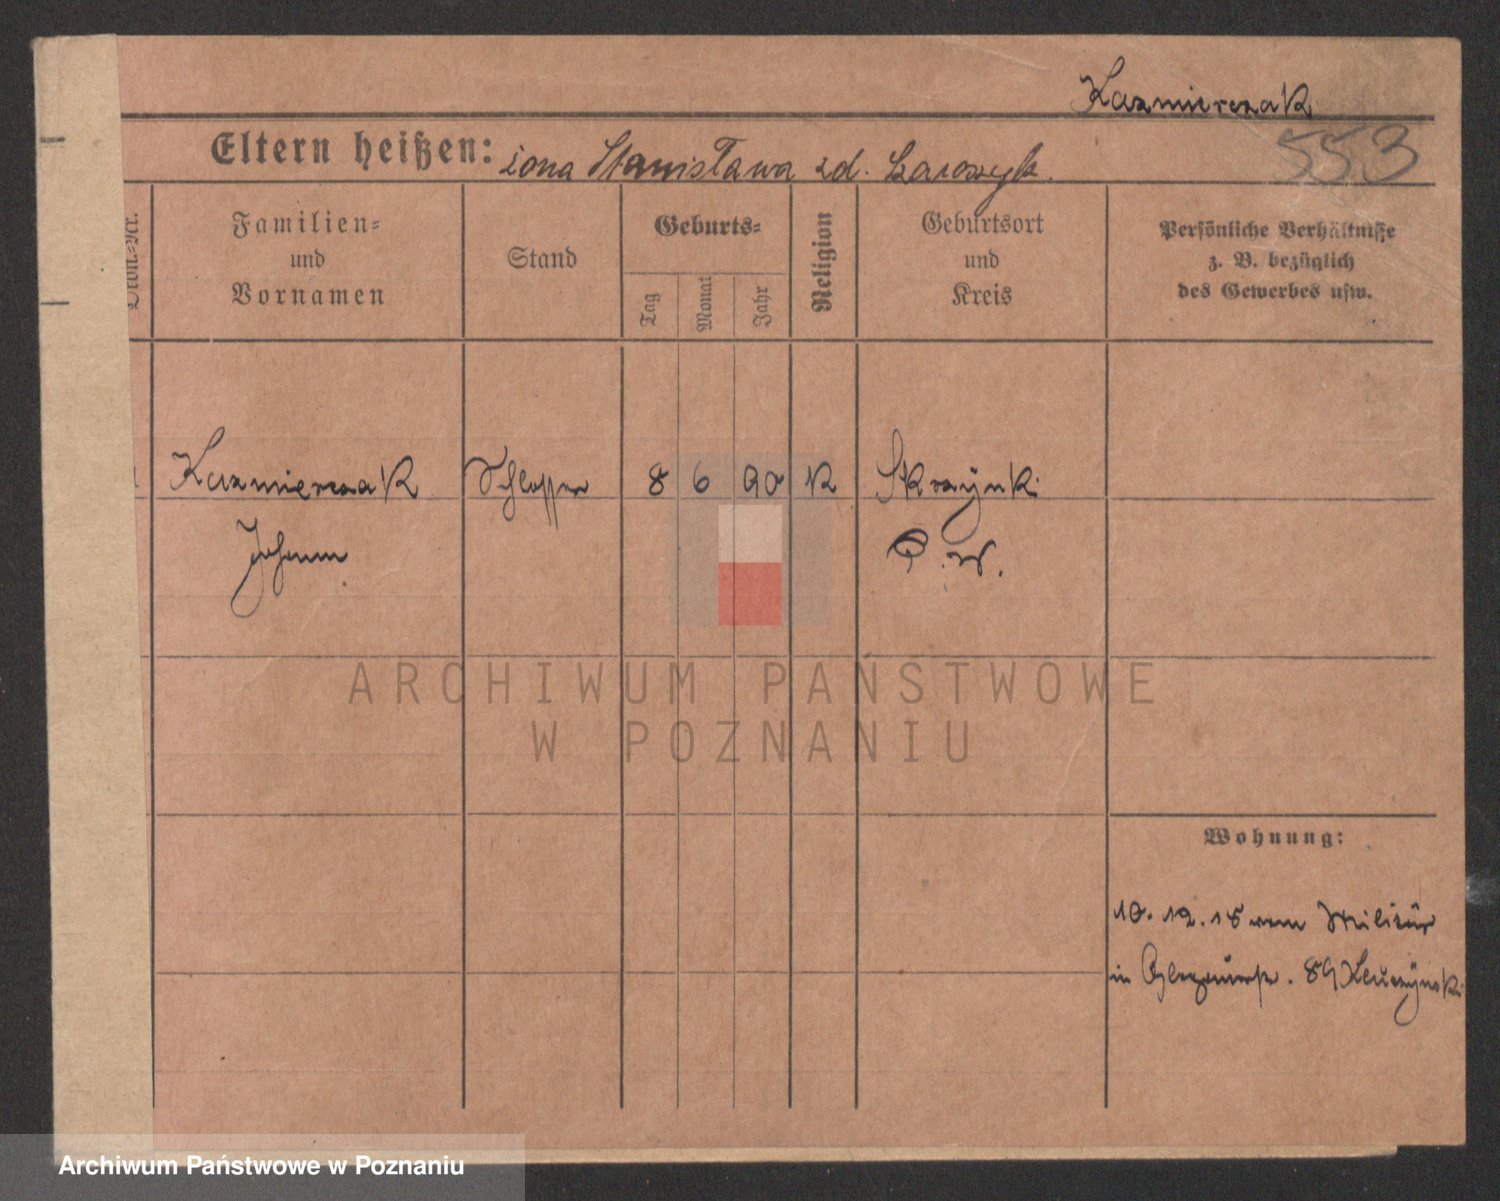 Kazmierczak
553
Eltern heißen: żona Stanisława zd.
Ordn.-Nr.
Familien-
und
Vornamen
Stand
Geburts-
Tag
Monat
Jahr
Religion
Geburtsort
und
Kreis
Persönliche Verhältnisse
z. B. bezüglich
des Gewerbes usw.
Kazmierczak Schlosser 8 6 90 K Skrzynki
Johann
ARCHIWUM PAŃSTWOWE
W POZNANIU
Wohnung:
10.12.15 vom Militär
in 89
Archiwum Państwowe w Poznaniu